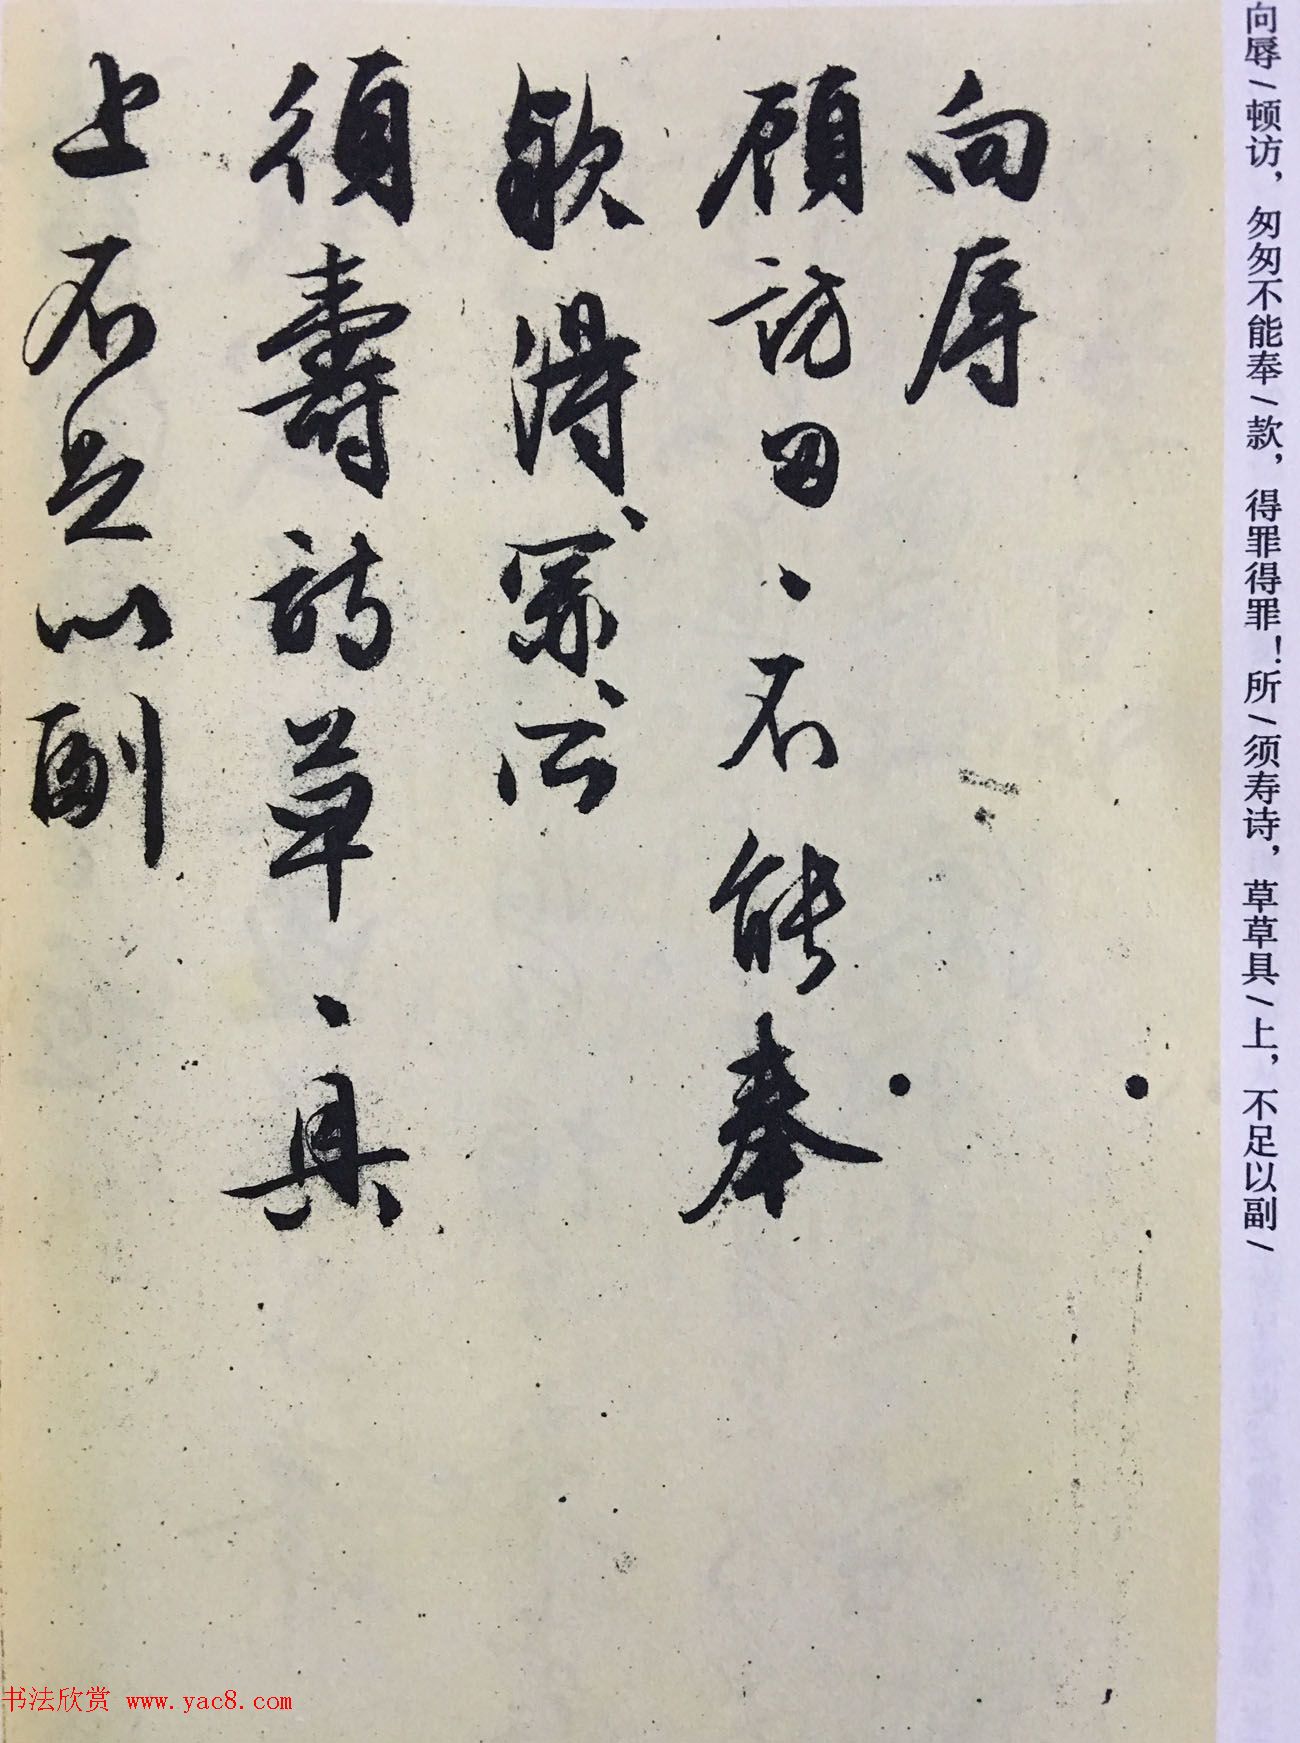 向辱
顾访匆、不能奉
款得、罪、所
须寿诗草、具
上不足以副
向辱\顿访，匆匆不能奉\款，得罪得罪！所\须寿诗，草草具\上，不足以副\
书法欣赏 www.yac8.com